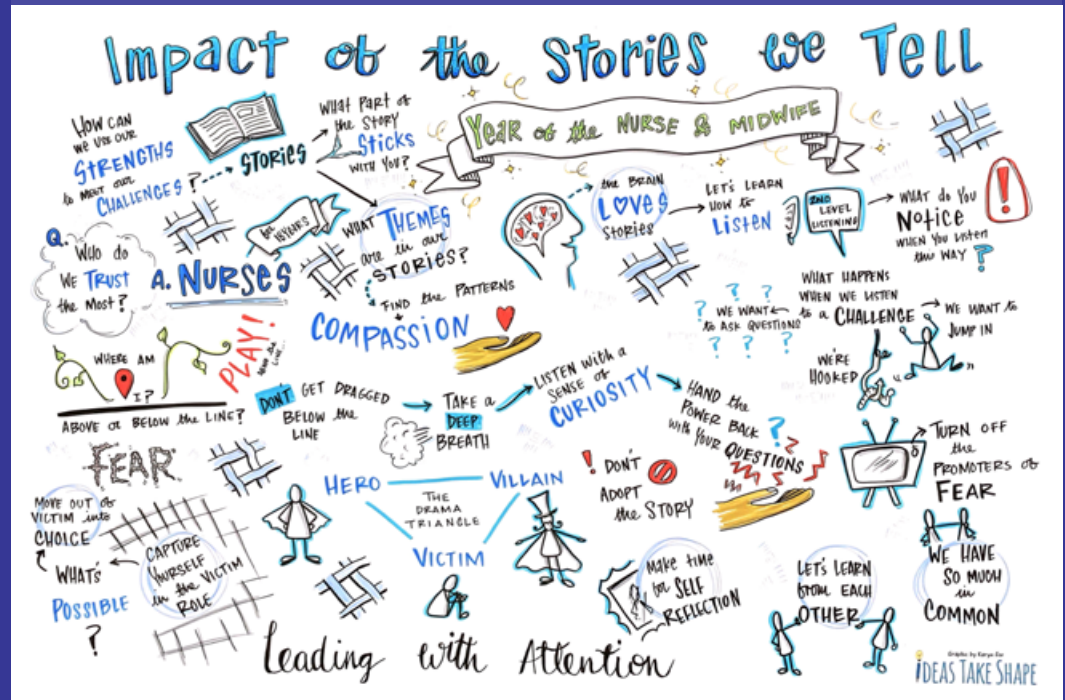 Impact of the Stories we Tell
How can
we use our
STRENGTHS
to meet our
CHALLENGES?
STORIES
What part of
the story
Sticks
with you?
Year of the NURSE & MIDWIFE
Q. Who do
we TRUST
the Most?
A. NURSES
WHAT THEMES
are in our
STORIES?
FIND the PATTERNS
COMPASSION
the BRAIN
LOVES
STORIES
LET'S LEARN
HOW to
LISTEN
2ND
LEVEL
LISTENING
WHAT do YOU
NOTICE
WHEN YOU LISTEN
this WAY ?
WHAT HAPPENS
WHEN WE LISTEN
to a CHALLENGE
WE WANT
to ASK QUESTIONS
? ? ?
? ? ?
WE'RE
HOOKED
WE WANT to
JUMP IN
WHERE AM
I?
ABOVE or BELOW the LINE?
PLAY!
DON'T GET DRAGGED
BELOW the
LINE
TAKE a
DEEP
BREATH
LISTEN with a
SENSE of
CURIOSITY
HAND the
POWER BACK
with YOUR QUESTIONS
?
! DON'T
ADOPT
the STORY
TURN OFF
the
PROMOTERS of
FEAR
FEAR
MOVE OUT of
VICTIM into
CHOICE
WHAT'S
POSSIBLE
?
CAPTURE
YOURSELF
in the VICTIM
ROLE
HERO
VILLAIN
THE
DRAMA
TRIANGLE
VICTIM
Make time
for SELF
REFLECTION
LET'S LEARN
from EACH
OTHER
WE HAVE
SO MUCH
in
COMMON
Leading with Attention
iDEAS TAKE SHAPE